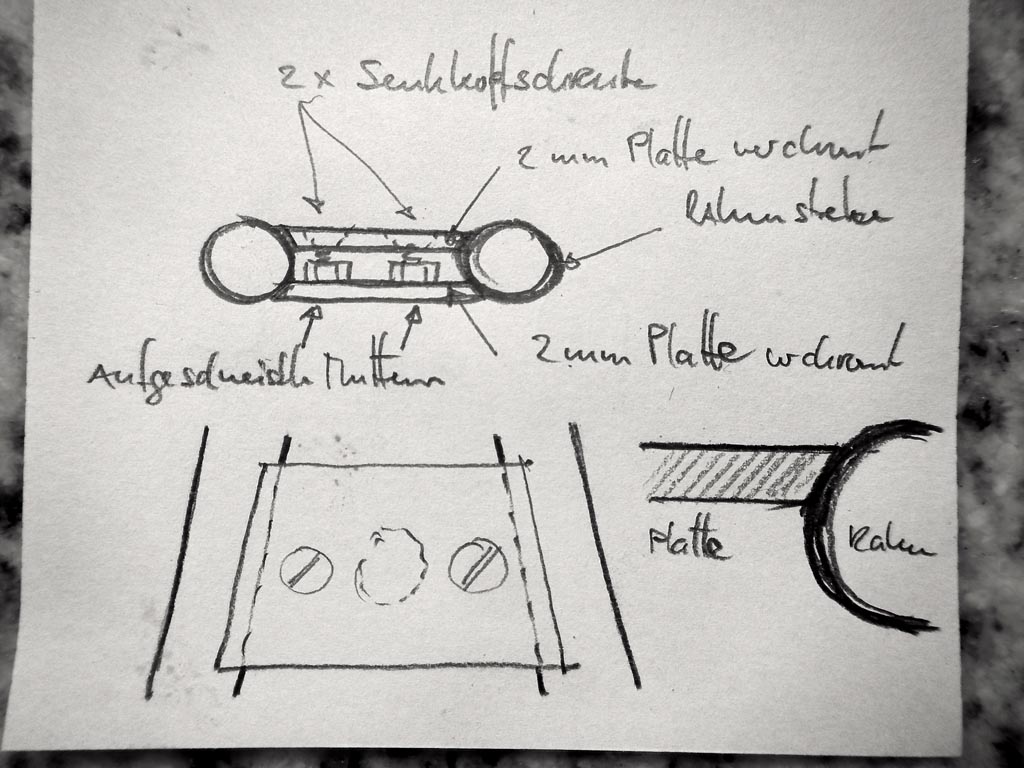 2 x Senkkopfschraube
2 mm Platte verchromt
Rahmenstrebe
2 mm Platte verchromt
Aufgeschweißte Muttern
Platte
Rahmen